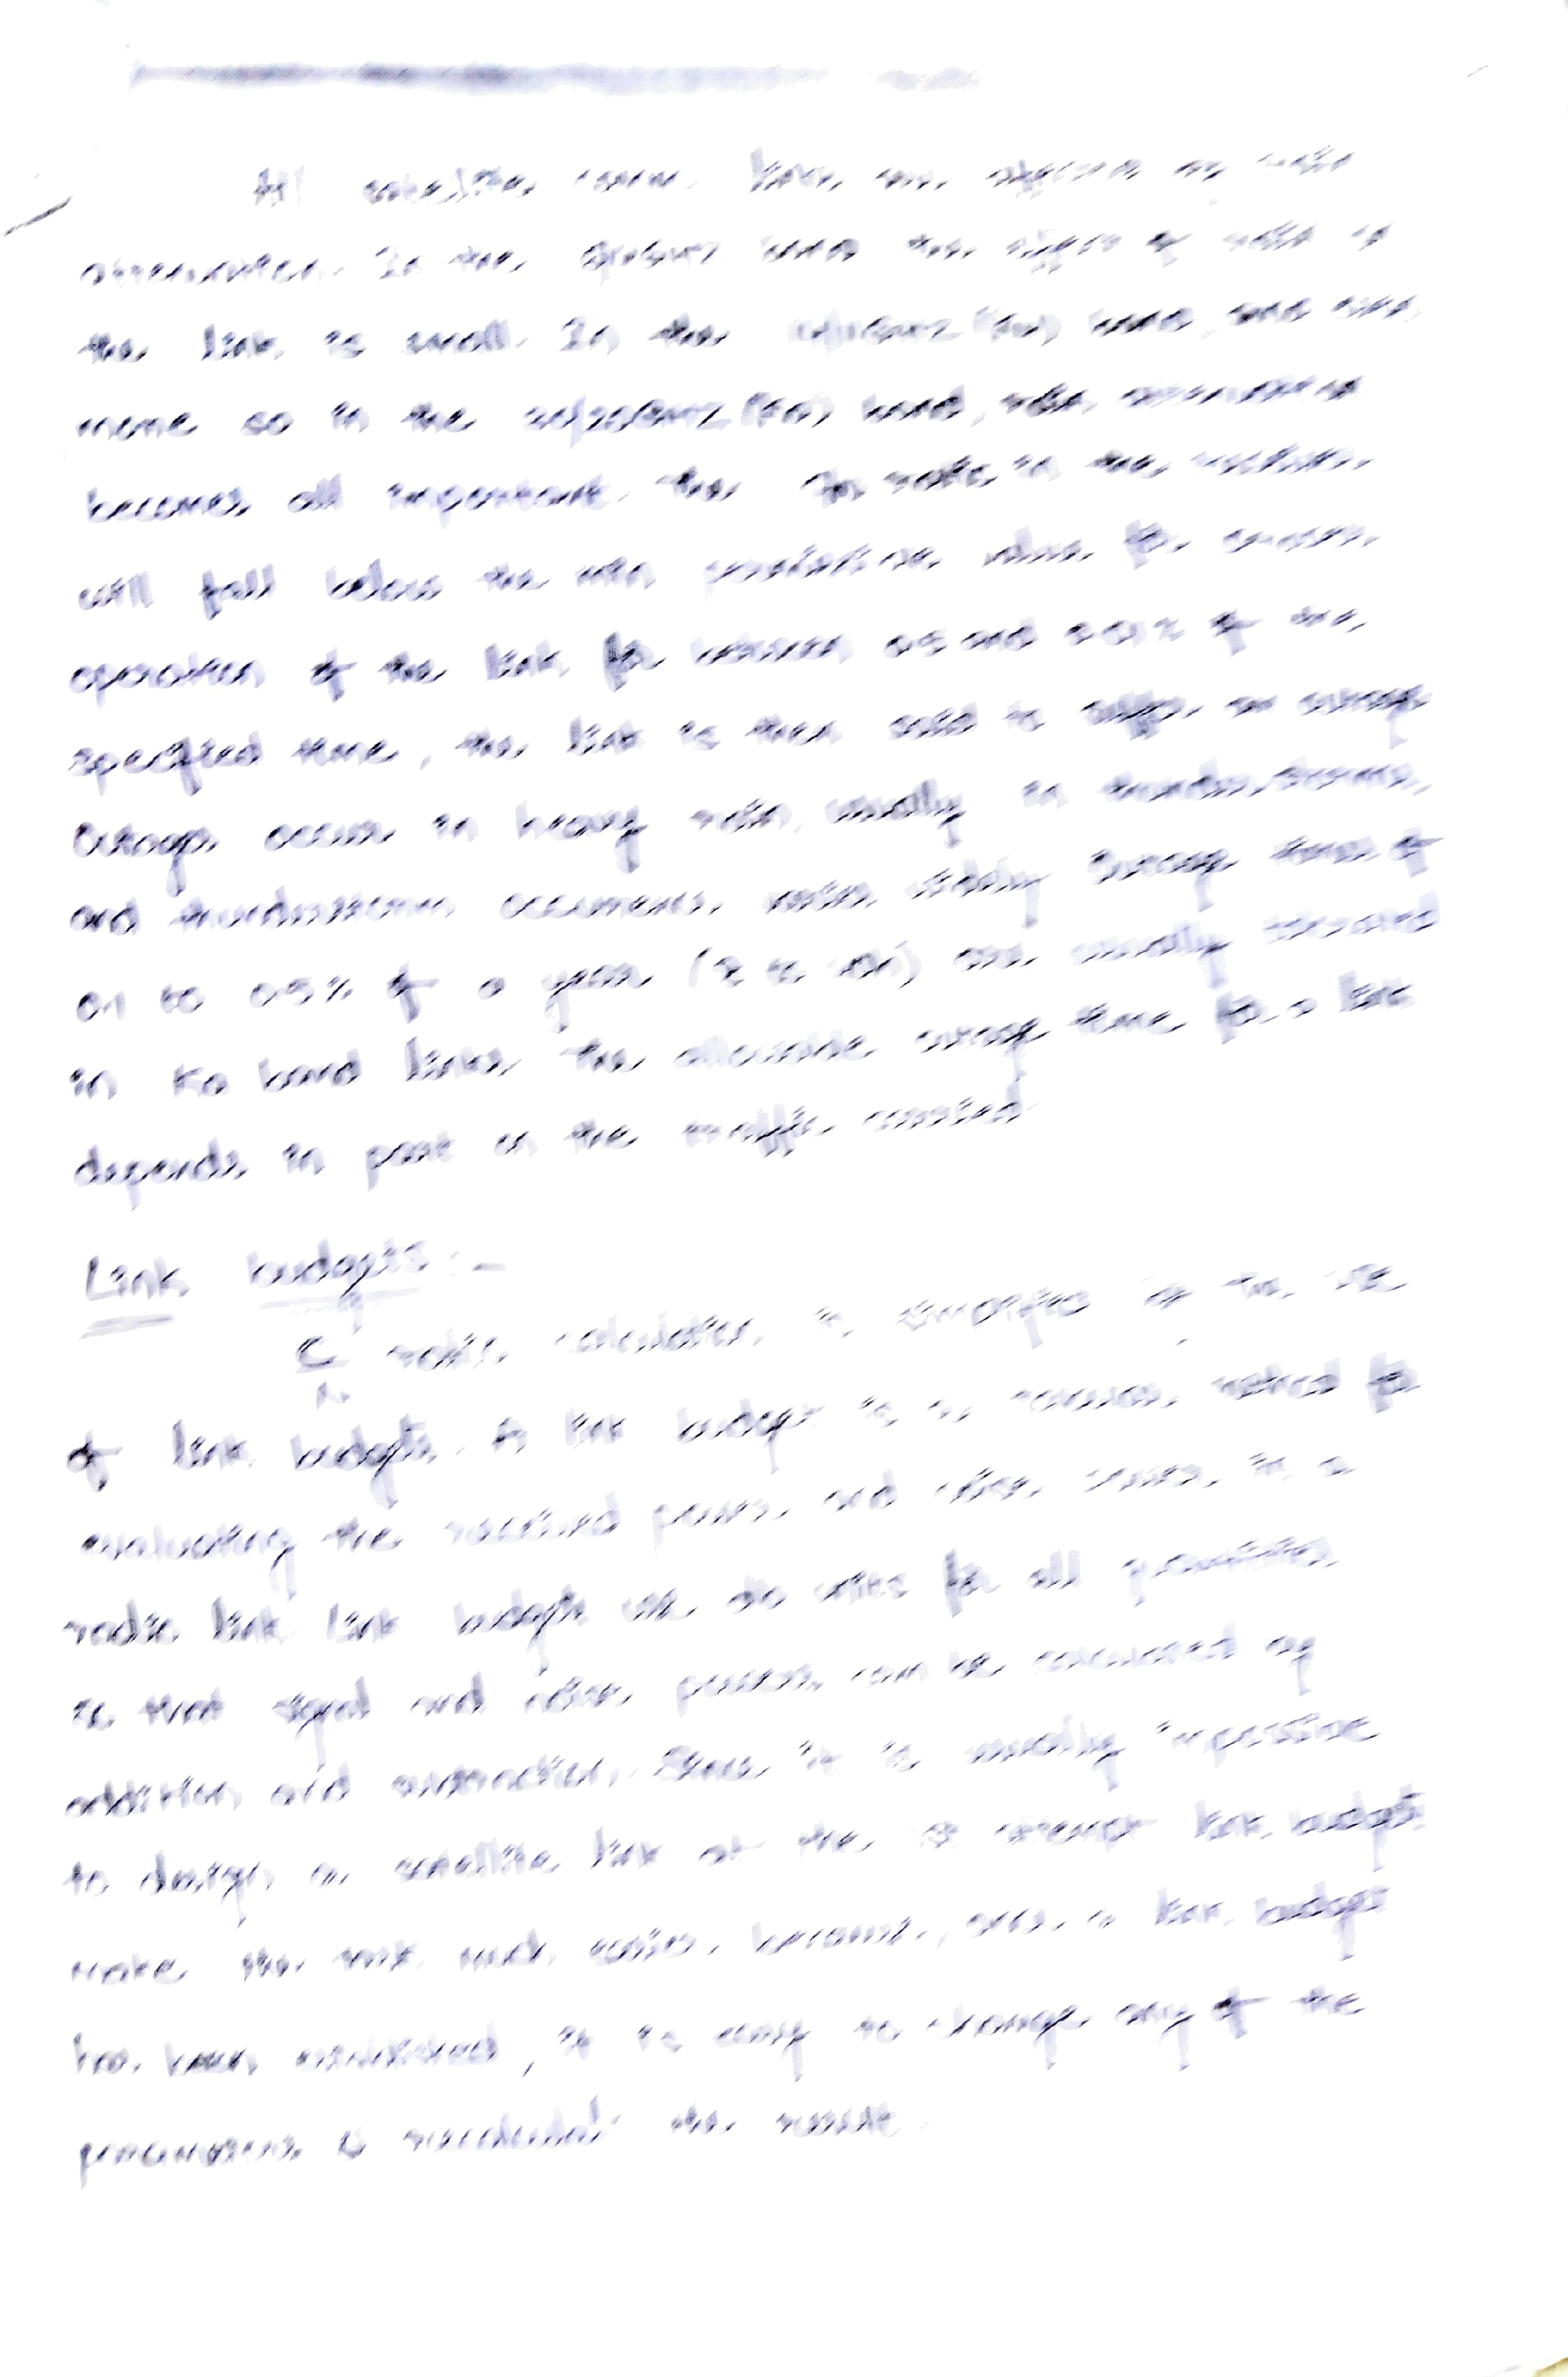 All satellite comm. links are affected by rain
attenuation. In the 6/4GHz band the effect of rain on
the link is small. In the 14/11GHz (Ku) band, and even
more so in the 30/20GHz (Ka) band, rain attenuation
becomes all important. the ratio in the
will fall below the min permissible value for
operation of the link for between 0.5 and % of the
specified time, the link is then said to suffer an outage
Outage occur in heavy rain, usually in thunder storms,
and thunderstorm occurrence outage times of
0.1 to 0.5% of a year (8 to 40h) are usually allowed
in Ka band links. the allowable outage time for a link
depends in part on the traffic carried.
Link budgets :-
C/N ratio calculation is simplified by the use
of link budgets. A link budget is a method for
evaluating the received power and noise power in a
radio link. Link budgets use db units for all
so that signal and noise powers can be calculated by
addition and subtraction. Since it is usually impossible
to design a satellite link at the 1st attempt link budgets
make the task much easier because, once a link budget
has been established, it is easy to change any of the
parameters & recalculate the result.